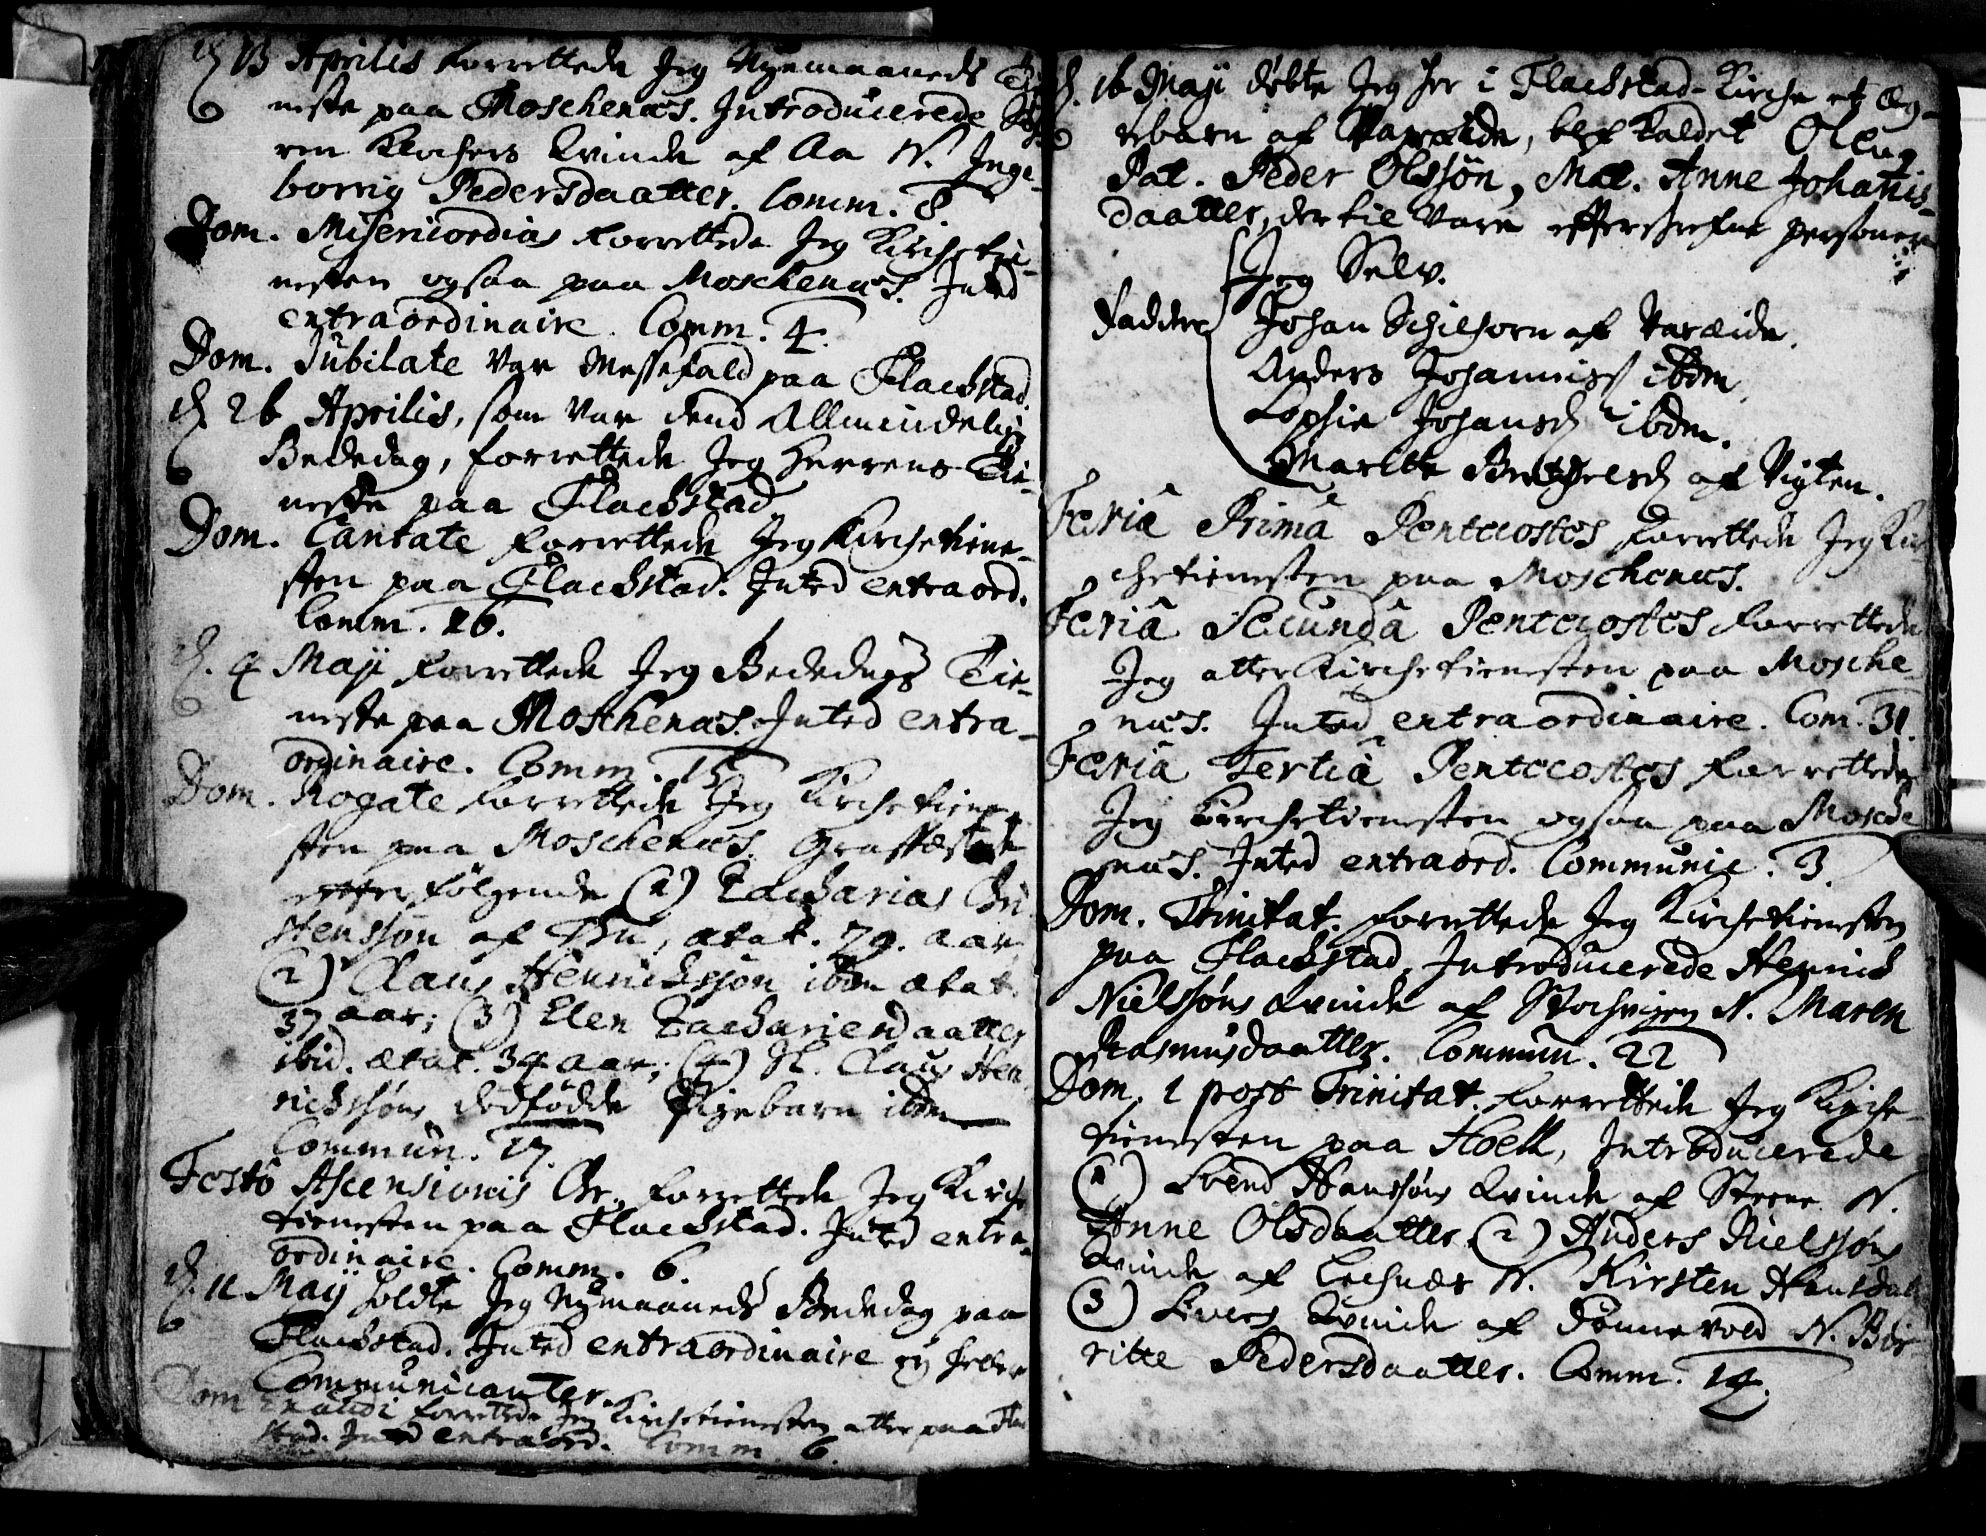 d. 13 Aprilis forrettede Jeg Nyemaaneds Tie-
neste paa Moschenæs. Introducerede
ren Klochers Kvinde af Aa N. Inge-
borrig Pedersdaatter. Comm. 8.
Dom. Misericordias forrettede Jeg Kirchetie-
nesten ogsaa paa Moschenæs. Inted
extraordinaire. Comm. 4.
Dom. Jubilate var Messefald paa Flachstad.
d. 26 Aprilis, som var dend Allmindelig
Bededag, forrettede Jeg Herrens Tie-
neste paa Flachstad
Dom. Cantate forrettede Jeg Kirchetiene-
sten paa Flachstad. Inted extraord.
Comm. 26.
d. 4 Maji forrettede Jeg Bededags Tie-
neste paa Moschenæs. Inted extra-
ordinaire. Comm. 15
Dom. Rogate forrettede Jeg Kirchetiene-
sten paa Moschenæs. Graffæstede
efterfølgende (1) Zacharias Chri
stensson af Bu, ætat. 79. aar
(2) Claus Henrichsson ibm ætat.
37 aar; (3) Elen Zachariesdaatter
ibid. ætat. 34 aar; (4) Sl. Claus Hen
richssøns dødfødde Pigebarn ibdm
Commun. 17.
Festo Ascensionis Chr. forrettede Jeg Kirche
tienesten paa Flachstad. Inted extra-
ordinaire. Comm. 6.
d. 11 Maij holdte Jeg Nymaaneds Bededag paa
Flachstad. Inted extraordinaire ej heller
Communicanter.
Dom Exaudi forrettede Jeg Kirchetienesten atter paa Flach
stad. Inted extraord. Comm. 6.
d. 16 Maji døbte Jeg her i Flachstad-Kirche et Æg-
tebarn af Vareide, blef kaldet Oleug
Pat. Peder Olssøn, Mat. Anne Johanis-
daatter, dertil vare efterskrefne personer
Jeg Selv.
Faddere Johan Schilhorn af Vareide.
Anders Johanniss ibdm
Sophie Johansd ibdm.
Marithe Berthelsd af Vigten.
Feriâ Primâ Pentecostes forrettede Jeg Kir
chetienesten paa Moschenæs.
Feriâ Secundâ Pentecostes forrettede
Jeg atter Kirchetienesten paa Mosche
næs. Inted extraordinaire. Com. 31.
Feriâ Tertiâ Pentecostes forrettede
Jeg Kirchetienesten ogsaa paa Mosche
næs. Inted extraord. Communic. 3.
Dom. Trinitat. forrettede Jeg Kirchetienesten
paa Flachstad, Introducerede Henrich
Nielssøns Kvinde af N. Maren
Rasmusdaatter. Commun. 22
Dom. 1 post Trinitat. forrettede Jeg Kirche-
tienesten paa Hoell, Introducerede
(1) Svend Hanssøns Kvinde af Steene N.
Anne Olsdaatter (2) Anders Nielssøns
Kvinde af Lechnæs N. Kirsten Hansdatt
(3) Kvinde af Sønnevold N. Bir
ritte Pedersdaatter. Comm. 14.